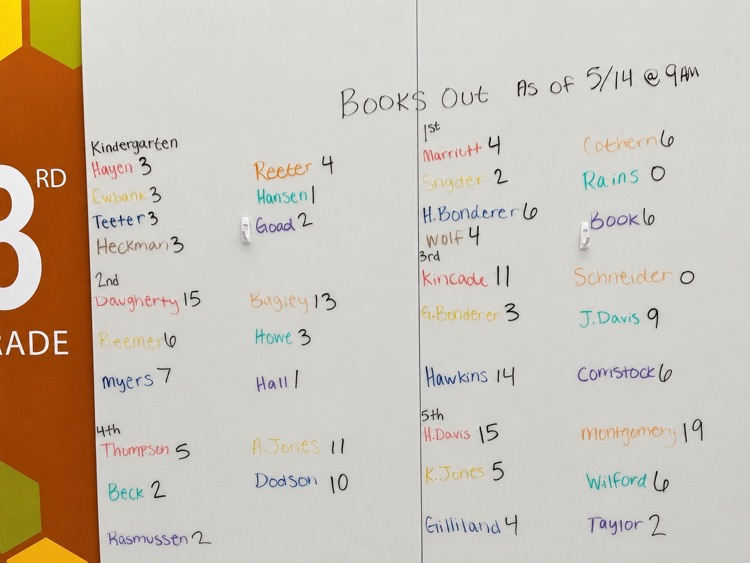 3RD
GRADE
Books Out As of 5/14 @ 9AM
Kindergarten
Hayen 3
Reeter 4
Ewbank 3
Hansen 1
Teeter 3
Goad 2
Heckman 3
1st
Marriott 4
Cothern 6
Snyder 2
Rains 0
H.Bonderer 6
Book 6
Wolf 4
2nd
Daugherty 15
Bagley 13
Beemer 6
Howe 3
Myers 7
Hall 1
3rd
Kincade 11
Schneider 0
G.Bonderer 3
J.Davis 9
Hawkins 14
Comstock 6
4th
Thompson 5
A.Jones 11
Beck 2
Dodson 10
Rasmussen 2
5th
H.Davis 15
Montgomery 19
K.Jones 5
Wilford 6
Gilliland 4
Taylor 2